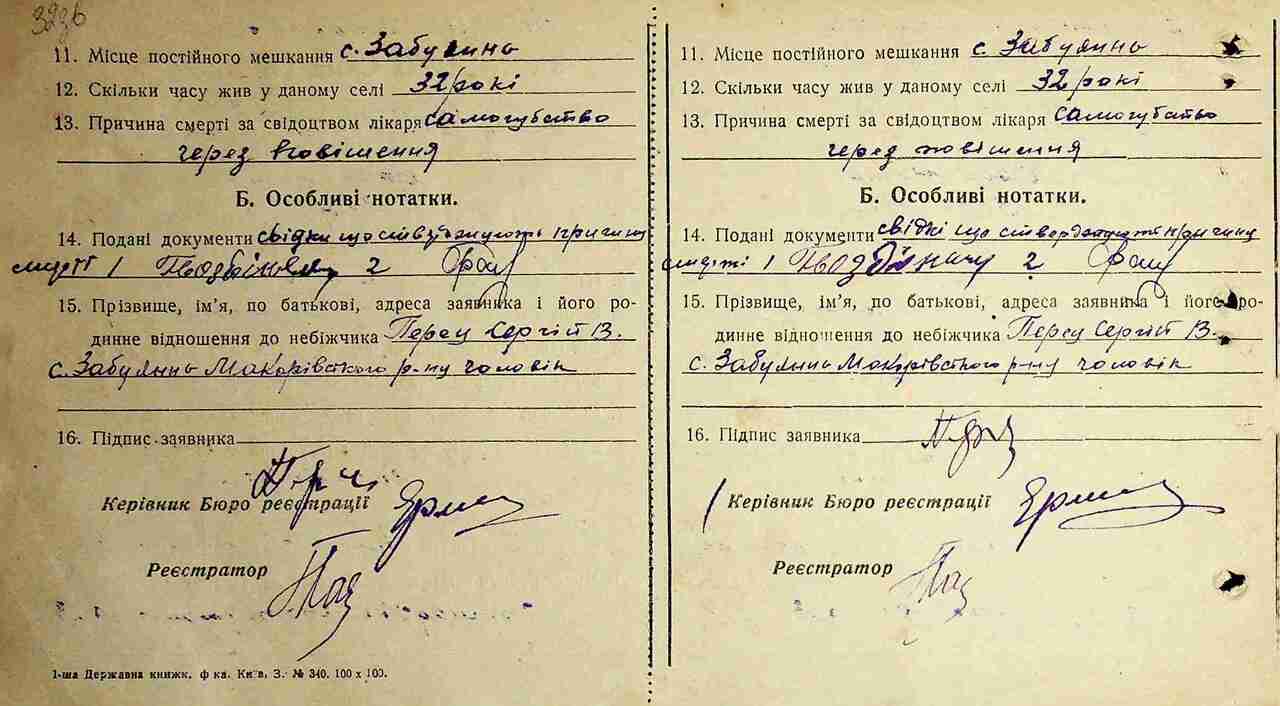 323б
11. Місце постійного мешкання с. Забуянно
12. Скільки часу жив у даному селі 32 рокі
13. Причина смерті за свідоцтвом лікаря самогубство
через повішення
Б. Особливі нотатки.
14. Подані документи свідки що ствержують причину
смерті 1 2
15. Прізвище, ім'я, по батькові, адреса заявника і його ро-
динне відношення до небіжчика Перец Сергій В.
с. Забуянно Макарівського р-ну чоловік
16. Підпис заявника
Керівник Бюро реєстрації
Реєстратор
1-ша Державна книжк. ф-ка. Київ, З. № 340. 100 х 100.
11. Місце постійного мешкання с. Забуянно
12. Скільки часу жив у даному селі 32 рокі
13. Причина смерті за свідоцтвом лікаря самогубство
через повішення
Б. Особливі нотатки.
14. Подані документи свідкі що стверджують причину
смерті 1 2
15. Прізвище, ім'я, по батькові, адреса заявника і його ро-
динне відношення до небіжчика Перец Сергій В.
с. Забуянно Макарівського р-ну чоловік
16. Підпис заявника
Керівник Бюро реєстрації
Реєстратор